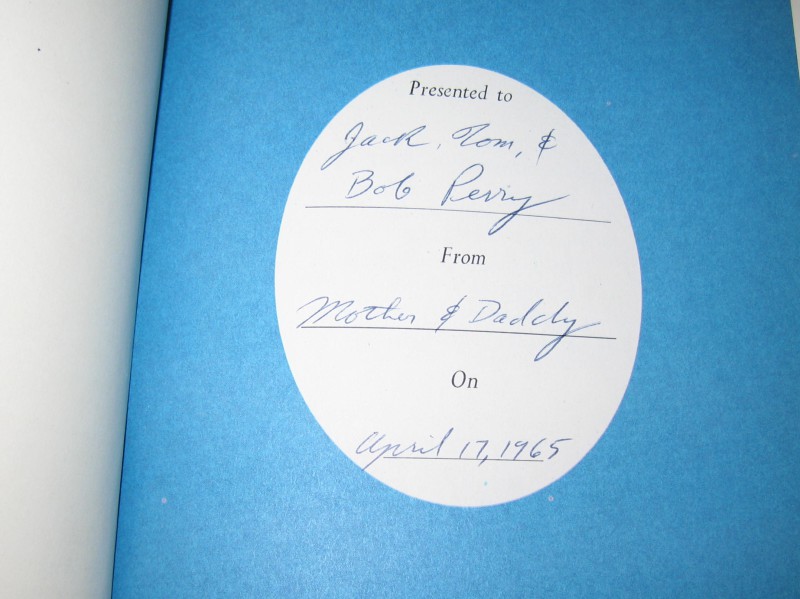 Presented to
Jack, Tom, &
Bob Perry
From
Mother & Daddy
On
April 17, 1965